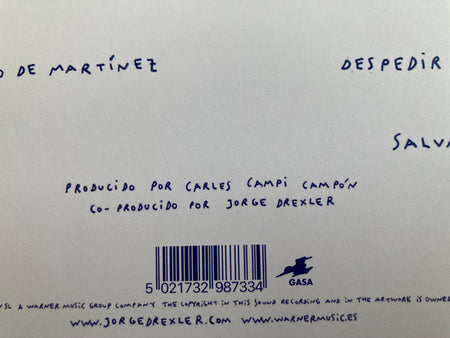 O DE MARTÍNEZ
DESPEDIR
SALVA
PRODUCIDO POR CARLES CAMPI CAMPÓN
CO-PRODUCIDO POR JORGE DREXLER
5 021732 987334
GASA
NSL A WARNER MUSIC GROUP COMPANY THE COPYRIGHT IN THIS SOUND RECORDING AND IN THE ARTWORK IS OWNED
WWW.JORGEDREXLER.COM WWW.WARNERMUSIC.ES